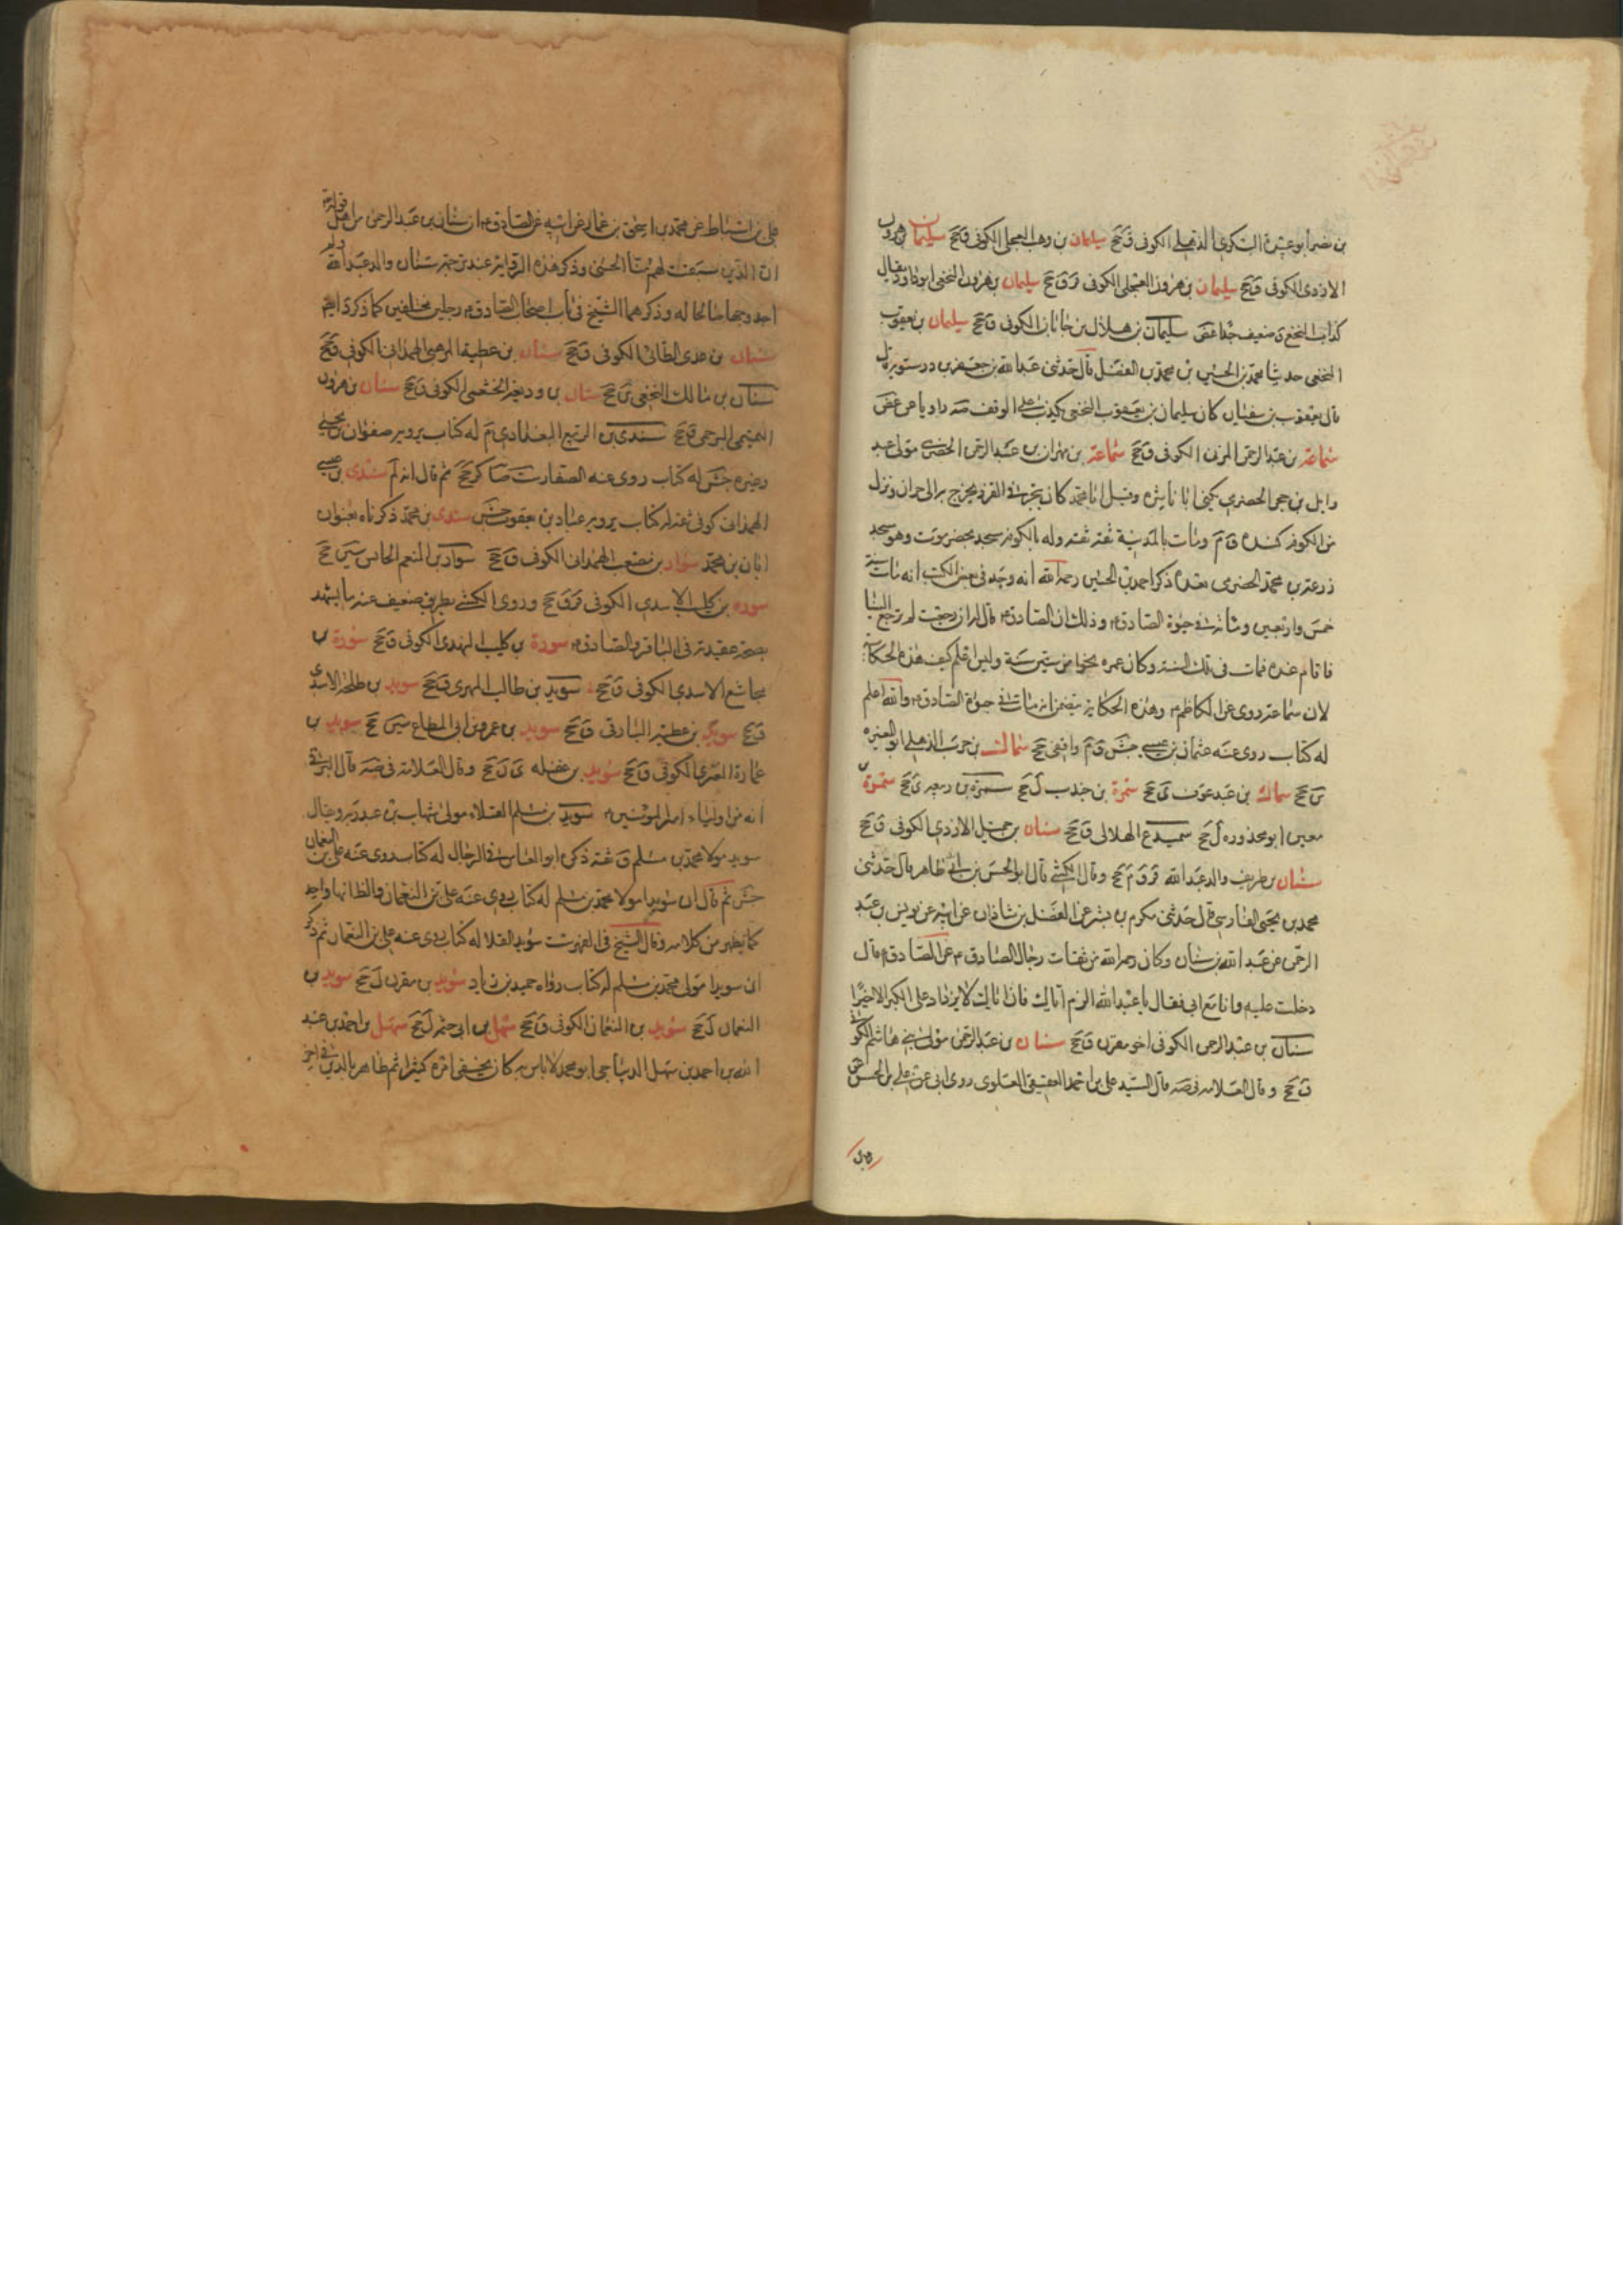 بن نصر ابو عبيدة السكرى الذهلى الكوفى ق جخ سليمان بن وهب العجلى الكوفى ق جخ سليمان بن هرون
الازدى الكوفى ق جخ سليمان بن هرون العجلى الكوفى قر ق جخ سليمان بن هرون النخعى ابو داود يقال
كذاب النخع ق ضعيف جدا غض سليمان بن هلال بن جابان الكوفى ق جخ سليمان بن يعقوب
النخعى حدثنا محمد بن الحسين بن محمد بن الفضل قال حدثنى عبد الله بن جعفر بن درستويه قال
قال يعقوب بن سفيان كان سليمان بن يعقوب النخعى يكذب على الوقف صه د غض
سماعة بن عبد الرحمن المزنى الكوفى ق جخ سماعة بن مهران بن عبد الرحمن الحضرمى مولى عبد
وايل بن حجر الحضرمى يكنى ابا ناشرة وقيل ابا محمد كان يتجر فى القز ويخرج به الى حران ونزل
من الكوفة كندة ق م ومات بالمدينة ثقة ثقة وله بالكوفة مسجد بحضرموت وهو مسجد
زرعة بن محمد الحضرمى بعده ذكر احمد بن الحسين رحمه الله انه وجد فى بعض الكتب انه مات سنة
خمس واربعين ومائة فى حيوة الصادق ع وذلك ان الصادق ع قال له ان رجعت لم ترجع الينا
فاقام عنده فمات فى تلك السنة وكان عمره نحوا من ستين سنة وليس اعلم كيف هذه الحكاية
لان سماعة روى عن الكاظم ع وهذه الحكاية يتضمن انه مات فى حيوة الصادق ع والله اعلم
له كتاب روى عنه عثمان بن عيسى جش ق م واقفى جخ سماك بن حرب الذهلى ابو المغيرة
ين جخ سماك بن عبد عوف ى جخ سمرة بن جندب ل جخ سمرة بن ربيعة ى جخ سمرة بن
معين ابو محذورة ل جخ سميدع الهلالى ق جخ سنان بن جميل الازدى الكوفى ق جخ
سنان بن طريف والد عبد الله قر ق م جخ وقال الكشى قال ابو الحسن بن ابى طاهر قال حدثنى
محمد بن يحيى الفارسى قال حدثنى مكرم بن بشر عن الفضل بن شاذان عن ابيه عن يونس بن عبد
الرحمن عن عبد الله بن سنان وكان رحمه الله من ثقات رجال الصادق ع عن الصادق ع قال
دخلت عليه وانا مع ابى فقال يا عبد الله الزم اباك فان اباك لا يزداد على الكبر الا خيرا
سنان بن عبد الرحمن الكوفى اخو مقرن ق جخ سنان بن عبد الرحمن مولى بنى هاشم الكوفى
ق جخ وقال العلامة فى صه قال السيد على بن احمد العقيقى العلوى روى ابى عن على بن الحسن عن
على بن اسباط عن محمد بن اسحق بن عمار عن ابيه عن الصادق ع ان سنان بن عبد الرحمن من اهل قوله تع
ان الذين سبقت لهم منا الحسنى وذكر هذه الرواية عند ترجمة سنان والد عبد الله ولم
اجد وجها صالحا له وذكرهما الشيخ فى باب اصحاب الصادق ع رجلين مختلفين كما ذكرناهم
سنان بن عدى الطائى الكوفى ق جخ سنان بن عطية المرهبى الهمدانى الكوفى ق جخ
سنان بن مالك النخعى ين جخ سنان بن وديعة الخثعمى الكوفى ق جخ سنان بن هرون
التميمى البرجمى ق جخ سندى بن الربيع البغدادى م له كتاب يرويه صفوان بن يحيى
وغيره جش له كتاب روى عنه الصفار ست ضا كر جخ ثم قال انه لم سندى بن عيسى
الهمدانى كوفى ثقة له كتاب يرويه عباد بن يعقوب جش سندى بن محمد ذكرناه بعنوان
ابان بن محمد سواد بن مصعب الهمدانى الكوفى ق جخ سواد بن المنعم الحابس سين جخ
سورة بن كليب الاسدى الكوفى قر ق جخ وروى الكشى بطريق ضعيف عنه ما يشهد
بصحة عقيدته فى الباقر والصادق ع سورة بن كليب النهدى الكوفى ق جخ سورة بن
مجاشع الاسدى الكوفى ق جخ سويد بن طالب المهرى ق جخ سويد بن طلحة الاسدى
ق جخ سويد بن عطية البارقى ق جخ سويد بن عمرو بن ابى المطاع سين جخ سويد بن
عمارة العنزى الكوفى ق جخ سويد بن غفلة ى ن جخ وقال العلامة فى صه قال البرقى
انه من اولياء امير المؤمنين ع سويد بن مسلم القلاء مولى شهاب بن عبد ربه ويقال
سويد مولا محمد بن مسلم ق ثقة ذكره ابو العباس فى الرجال له كتاب روى عنه على بن النعمان
جش ثم قال ان سويدا مولا محمد بن مسلم له كتاب روى عنه على بن النعمان والظ انهما واحد
كما يظهر من كلامه وقال الشيخ فى الفهرست سويد القلا له كتاب روى عنه على بن النعمان ثم ذكر
ان سويدا مولى محمد بن مسلم له كتاب رواه حميد بن زياد سويد بن مقرن ل جخ سويد بن
النعمان ل جخ سويد بن النعمان الكوفى ق جخ سهل بن ابى حثمة ل جخ سهل بن احمد بن عبد
الله بن احمد بن سهل الديباجى ابو محمد لا باس به كان يخفى امره كثيرا ثم ظاهر بالدين فى اخر